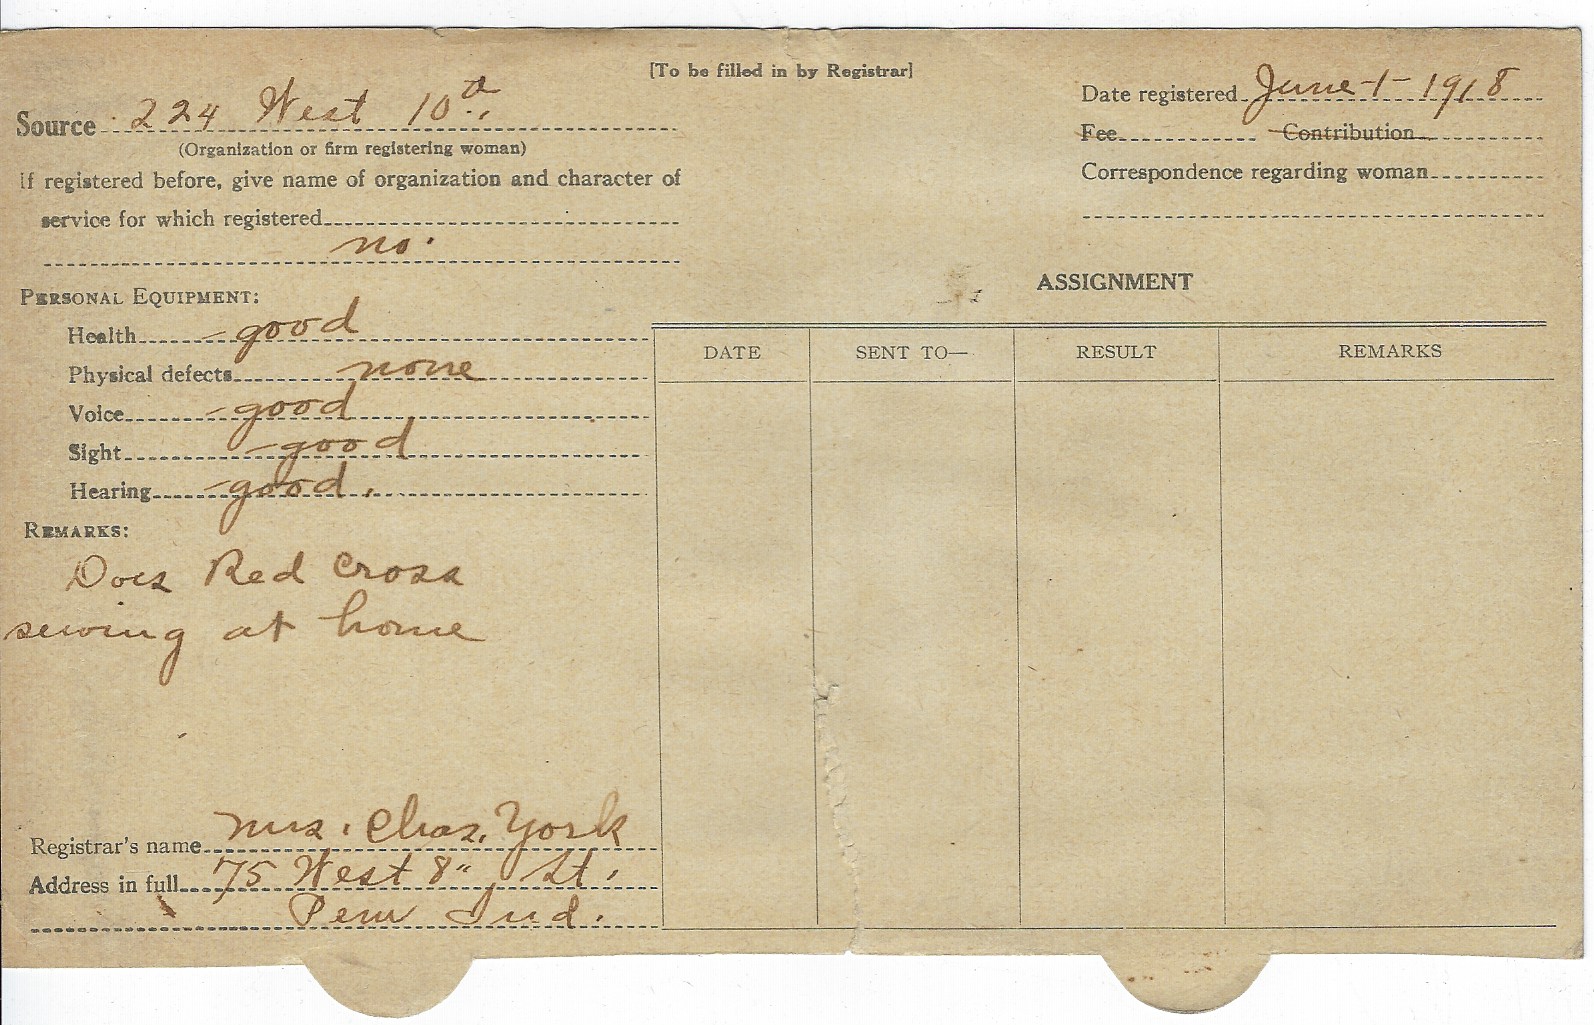 [To be filled in by Registrar]
Source 224 West 10th.
(Organization or firm registering woman)
If registered before, give name of organization and character of
service for which registered
no.
Date registered June 1 - 1918
Fee Contribution
Correspondence regarding woman
PERSONAL EQUIPMENT:
Health good
Physical defects none
Voice good
Sight good
Hearing good.
REMARKS:
Does Red Cross
sewing at home
Registrar's name Mrs. Chas. York
Address in full 75 West 8" St.
Peru Ind.
ASSIGNMENT
DATE SENT TO— RESULT REMARKS